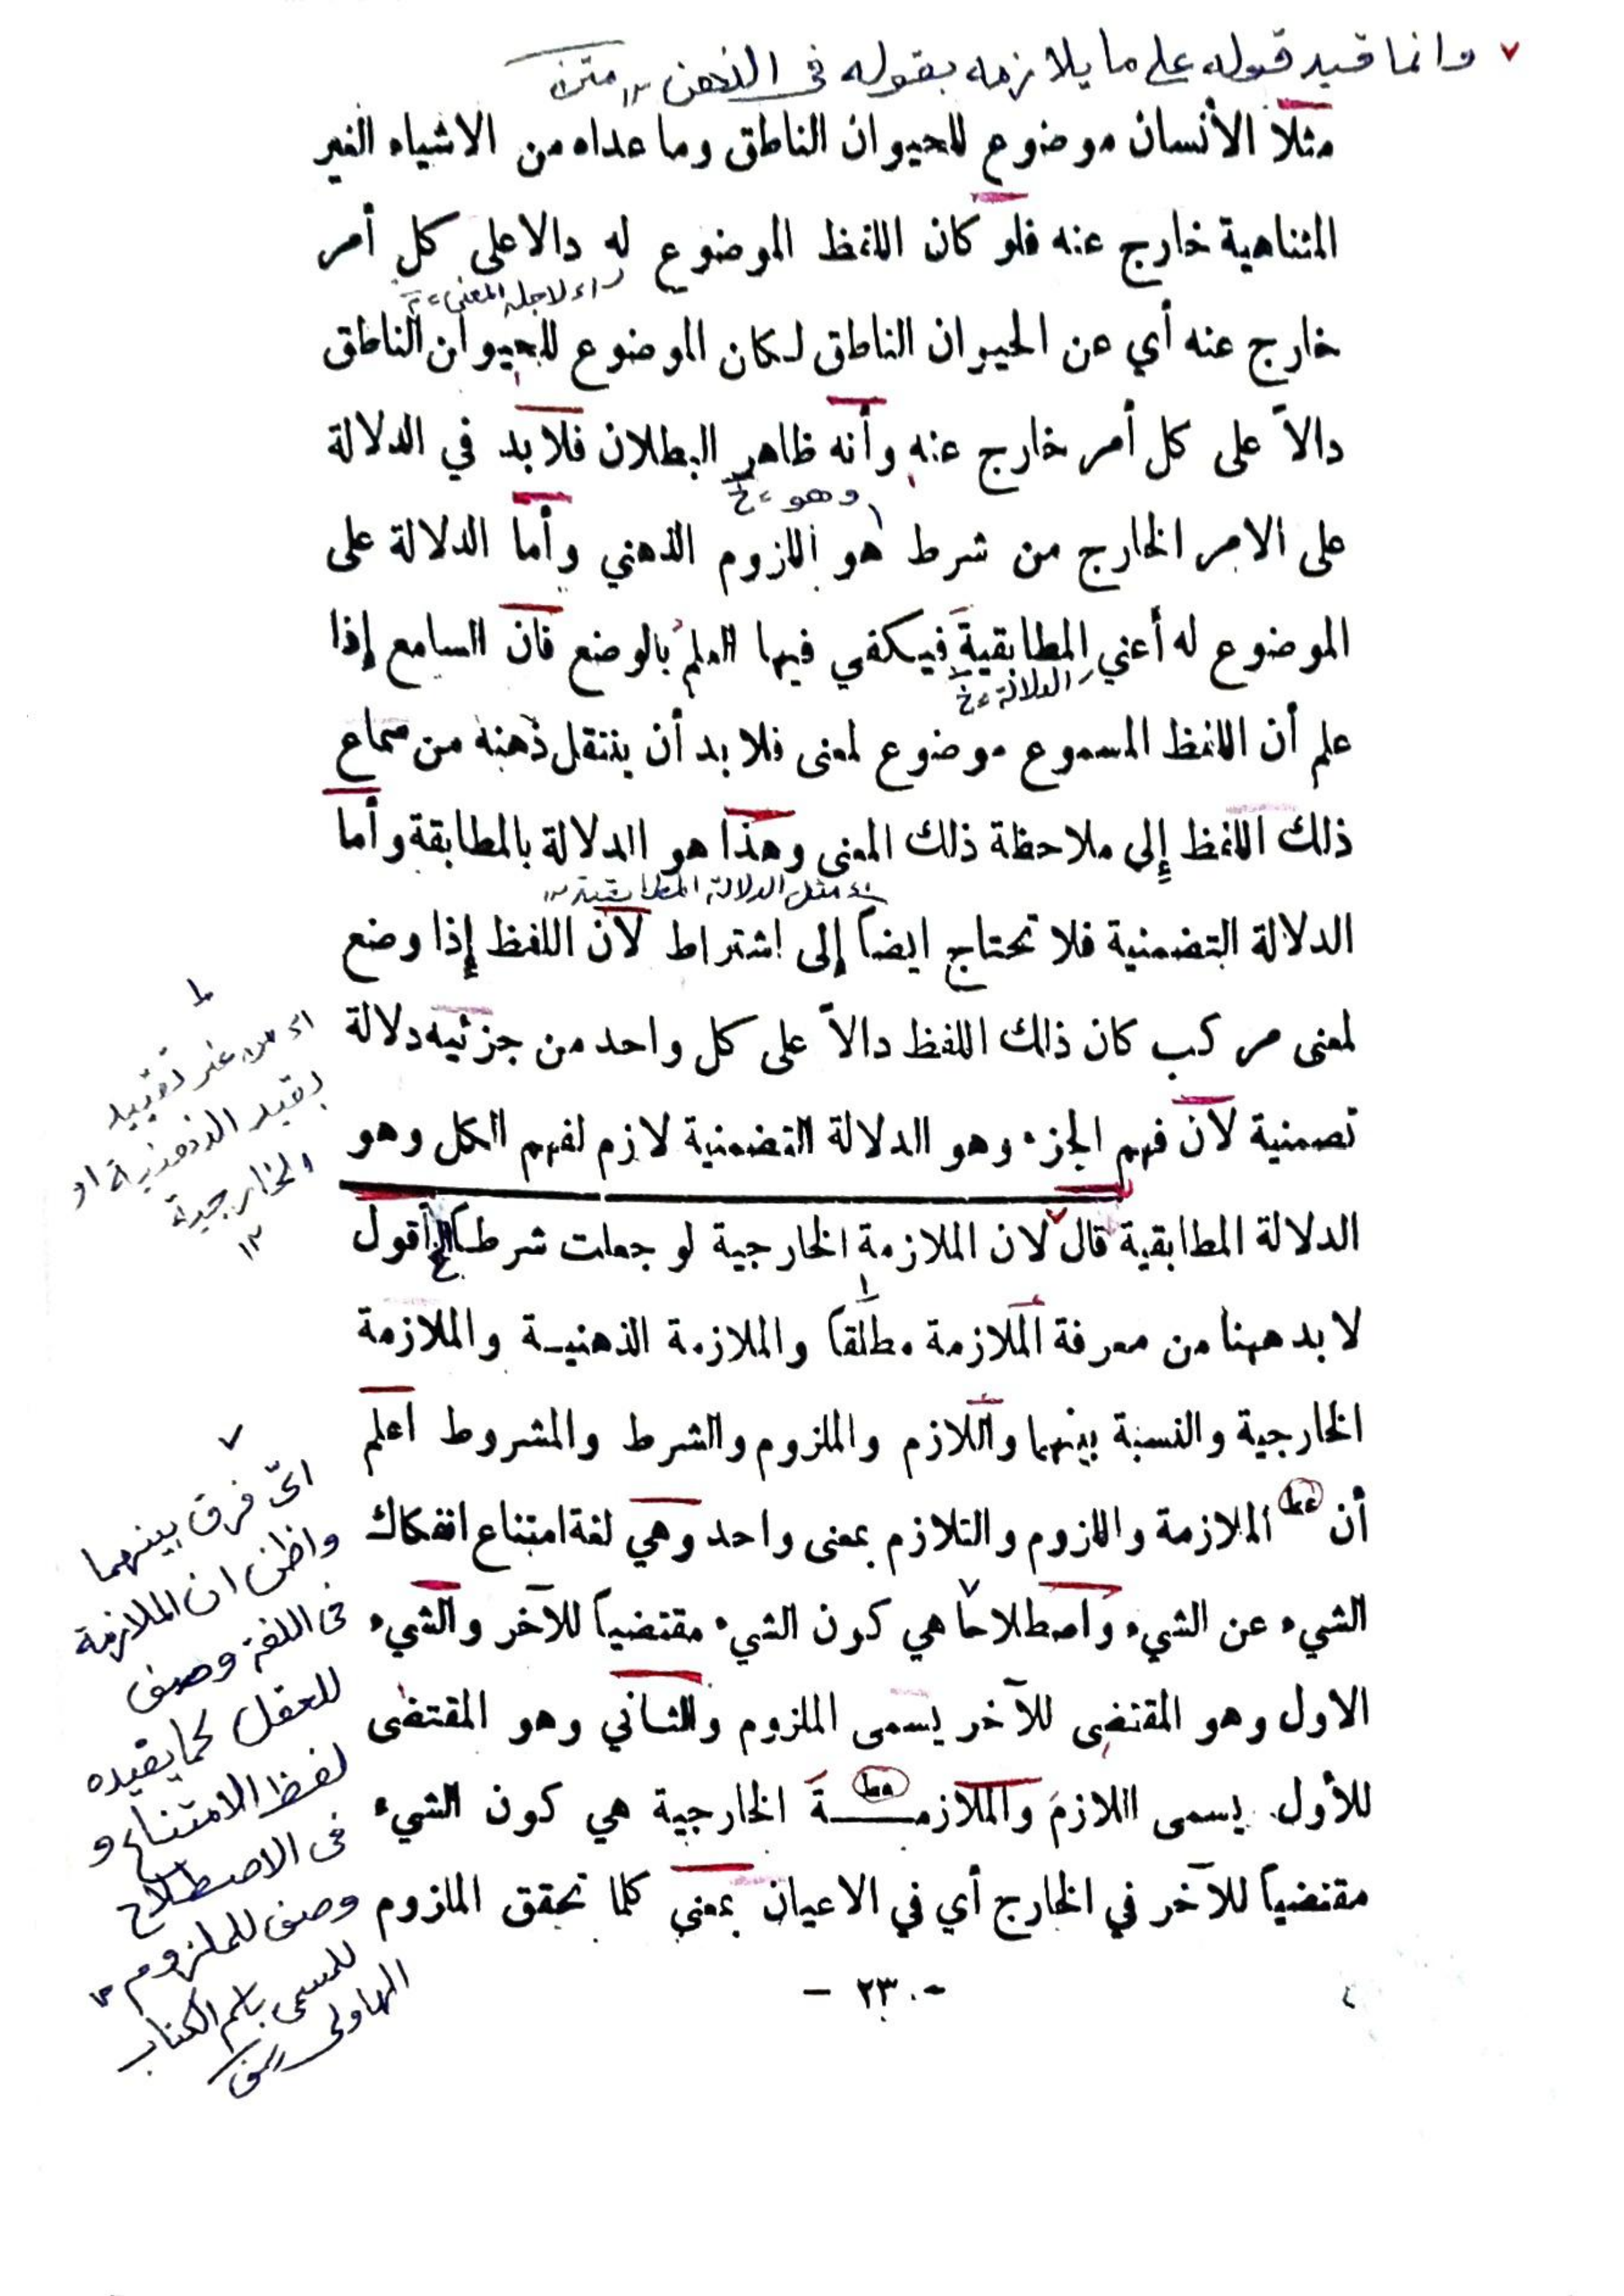 وانما قيد قوله على ما يلازمه بقوله في الذهن ١٢ متن
مثلاً الأنسان موضوع للحيوان الناطق وما عداه من الاشياء الغير
المتناهية خارج عنه فلو كان اللفظ الموضوع له دالا على كل أمر
اء لاجله المعنى
خارج عنه أي عن الحيوان الناطق لكان الموضوع للحيوان الناطق
دالاً على كل أمر خارج عنه وأنه ظاهر البطلان فلا بد في الدلالة
وهو خ
على الامر الخارج من شرط هو اللزوم الذهني وأما الدلالة على
الموضوع له أعني المطابقية فيكفي فيها العلم بالوضع فان السامع إذا
الدلالة خ
علم أن اللفظ المسموع موضوع لمعنى فلا بد أن ينتقل ذهنه من سماع
ذلك اللفظ إلى ملاحظة ذلك المعنى وهذا هو الدلالة بالمطابقة وأما
اء مثل الدلالة المطابقية ١٢
الدلالة التضمنية فلا تحتاج ايضاً إلى اشتراط لان اللفظ إذا وضع
لمعنى مركب كان ذلك اللفظ دالاً على كل واحد من جزئيه دلالة
تصمنية لان فهم الجزء وهو الدلالة التضمنية لازم لفهم الكل وهو
الدلالة المطابقية قال لان الملازمة الخارجية لو جعلت شرطاً الخ أقول
لا بد ههنا من معرفة الملازمة مطلقاً والملازمة الذهنية والملازمة
الخارجية والنسبة بينهما واللازم والملزوم والشرط والمشروط اعلم
أن الملازمة واللزوم والتلازم بمعنى واحد وهي لغة امتناع انفكاك
الشيء عن الشيء واصطلاحا هي كون الشيء مقتضياً للآخر والشيء
الاول وهو المقتضى للآخر يسمى الملزوم والثاني وهو المقتضى
للأول يسمى اللازم والملازمة الخارجية هي كون الشيء
مقتضياً للآخر في الخارج أي في الاعيان بمعنى كلما تحقق الملزوم
- ٢٣ -
اء من غير تقييد
بقيد الذهنية او
الخارجية
١٢
ائ فرق بينهما
واظن ان الملازمة
في اللغة وصف
للعقل كما يقيده
لفظ الامتناع و
في الاصطلاح
وصف للملزوم ١٢
للمسمى باسم الكتاب